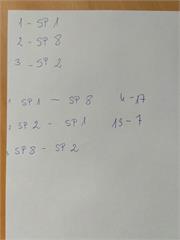 1 - SP 1
2 - SP 8
3 - SP 2
SP 1 - SP 8 4-17
SP 2 - SP 1 13-7
SP 8 - SP 2